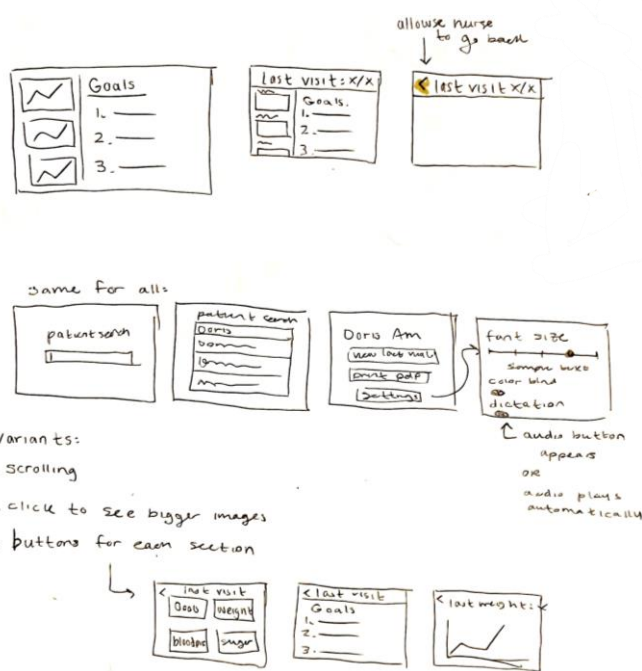 allowse nurse
to go back
Goals
1.
2.
3.
last visit: x/x
Goals.
1.
2.
3.
< last visit x/x
same for all:
patient search
patient search
Doris
Doris Am
view last visit
print pdf
settings
font size
sample text
color blind
dictation
audio button
appears
OR
audio plays
automatically
variants:
scrolling
click to see bigger images
buttons for each section
< last visit
Goals
weight
sugar
< last visit
Goals
1.
2.
3.
< last weight: